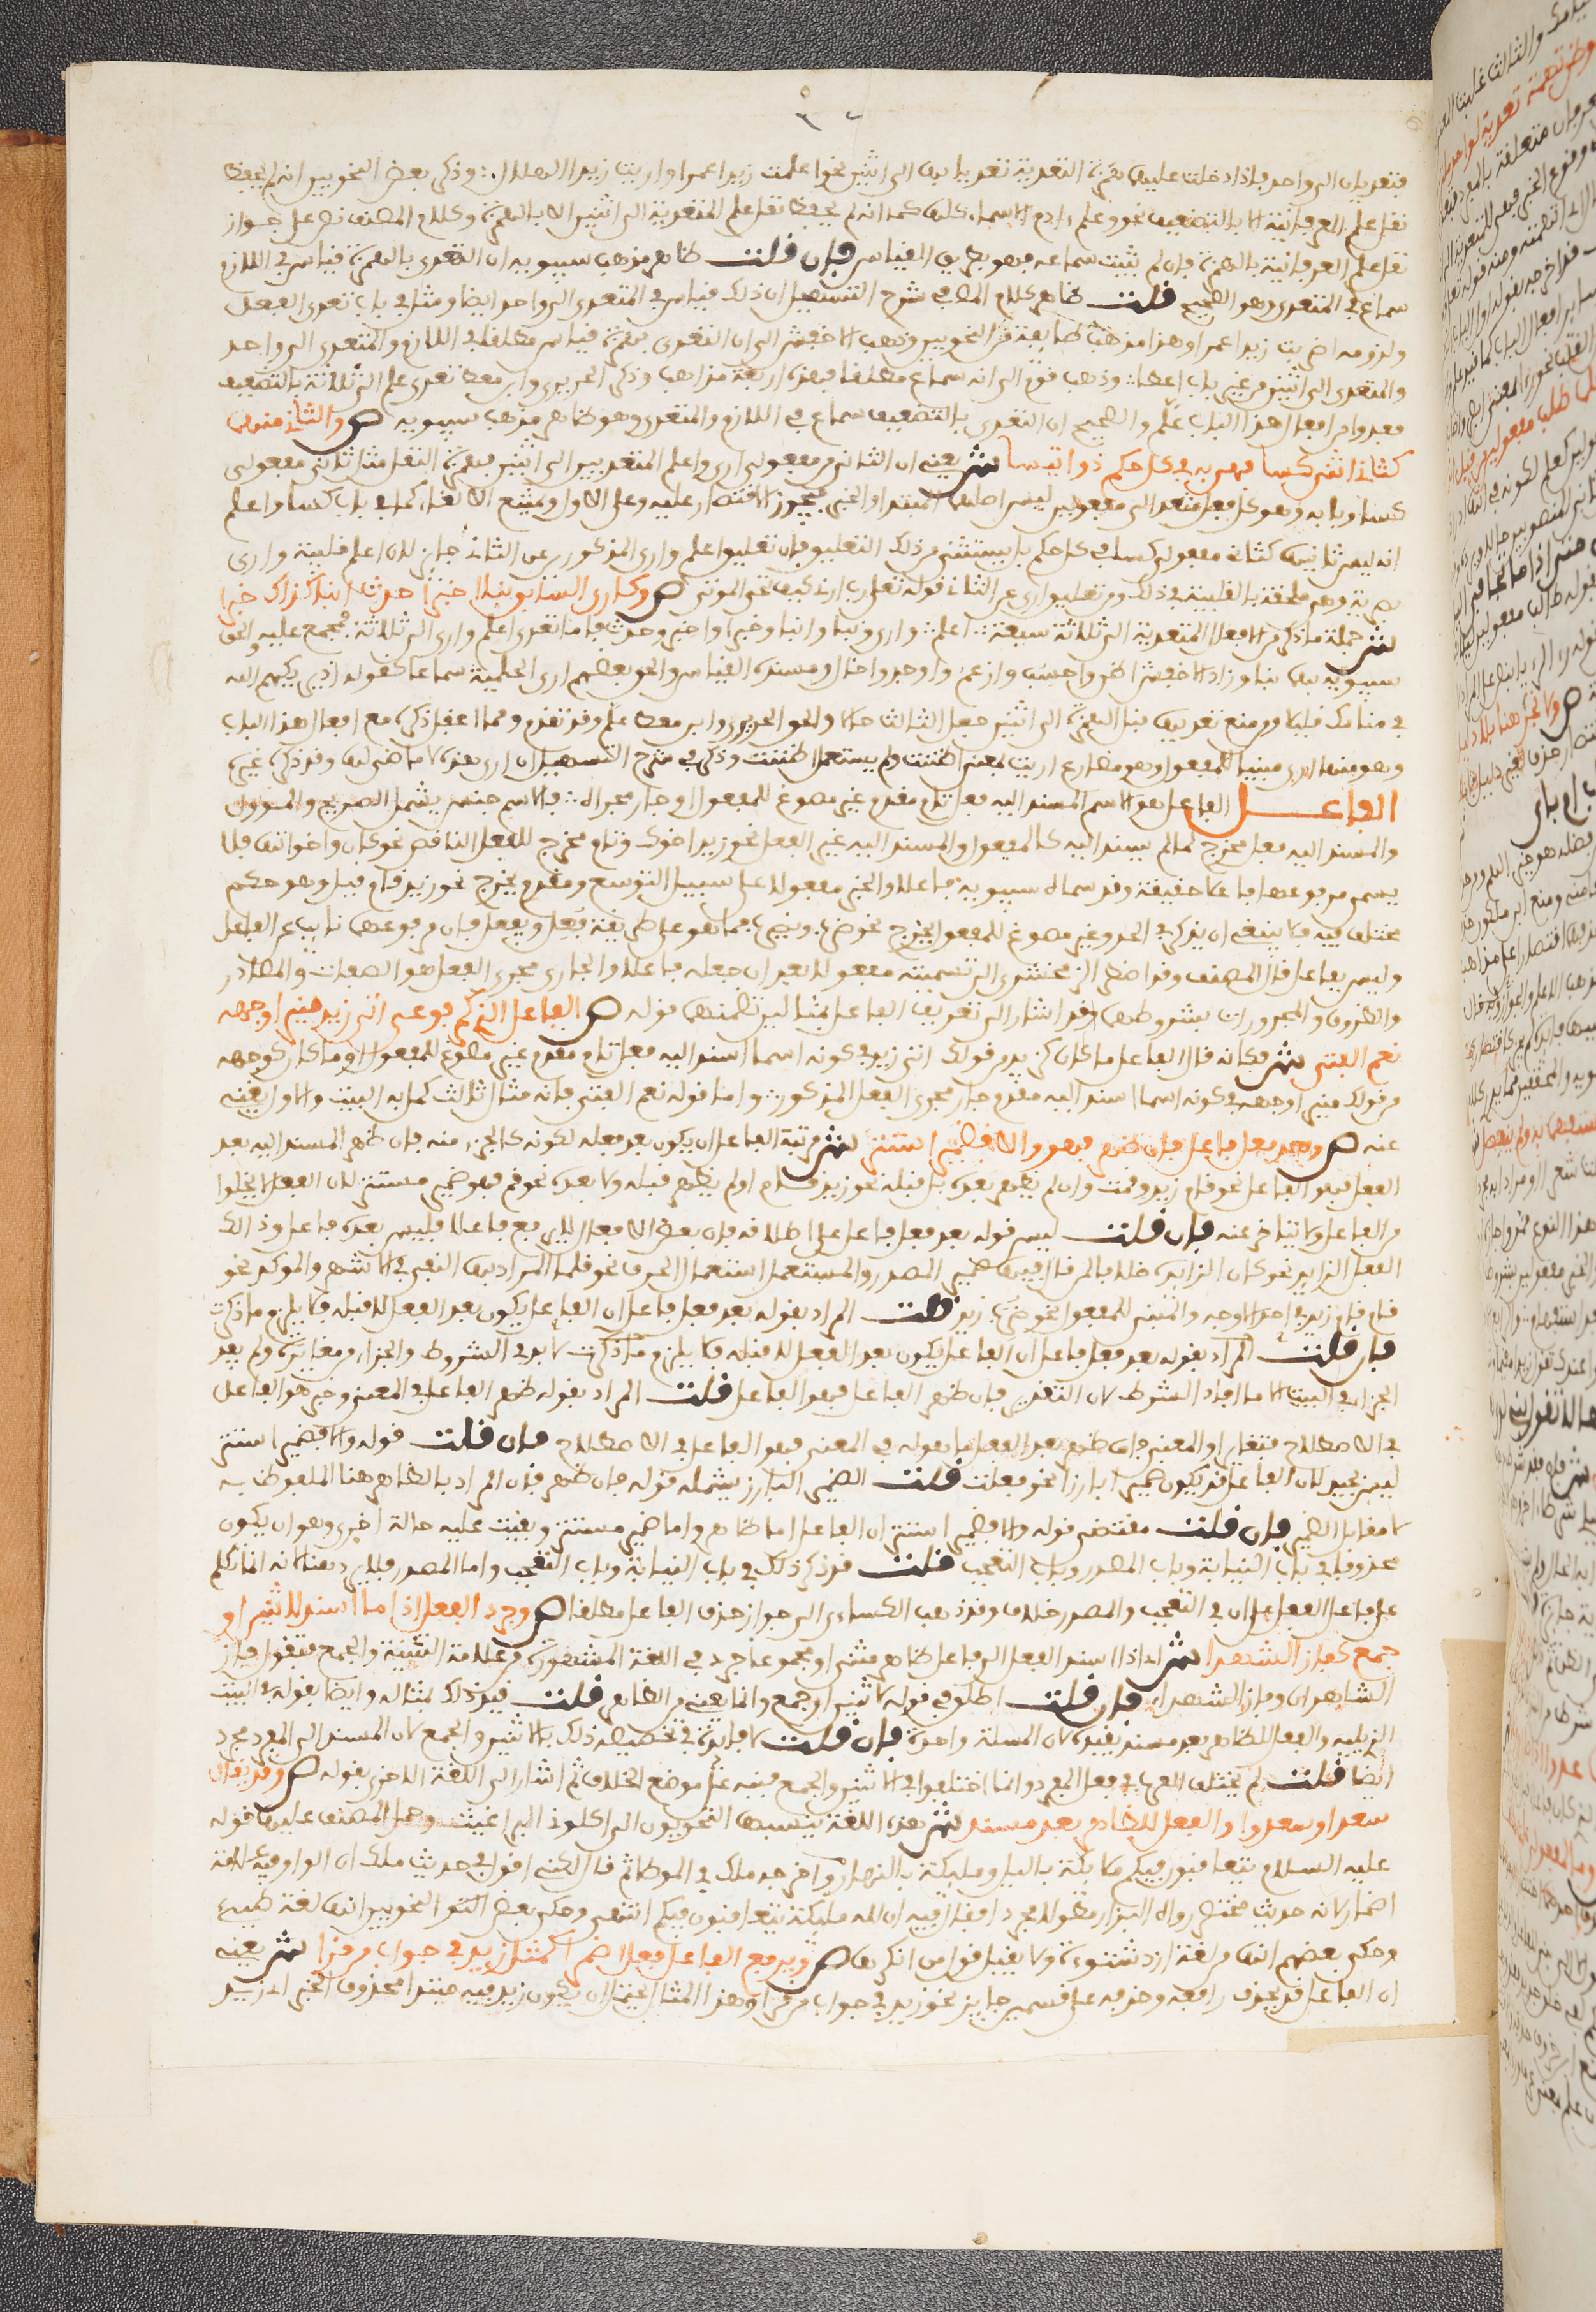 فتعديان الى واحد فاذا دخلت عليهما همزة التعدية تعديا بها الى اثنين نحو اعلمت زيدا عمرا واريت زيدا الهلال وذكر بعض النحويين انه لم يحفظ
نقل علم العرفانية الا بالتضعيف نحو وعلم ءادم الاسماء كلها كما انه لم يحفظ نقل علم المتعدية الى اثنين الا بالهمزة وكلام المصنف نص على جواز
نقل علم العرفانية بالهمزة فان لم يثبت سماعه فهو بطريق القياس فان قلت ظاهر مذهب سيبويه ان التعدي بالهمزة قياس في اللازم
سماع في المتعدي وهو الصحيح قلت ظاهر كلام المص في شرح التسهيل ان ذلك قياس في المتعدي الى واحد ايضا ومثل في باب تعدي الفعل
ولزومه اضربت زيدا عمرا وهذا مذهب طايفة من النحويين وذهب الاخفش الى ان التعدي بهمزة قياس مطلقا في اللازم والمتعدي الى واحد
والمتعدي الى اثنين من غير باب اعطا وذهب قوم الى انه سماع مطلقا فهذه اربعة مذاهب وذكر الحريري وابن معط تعدي علم الى ثلاثة بالتضعيف
فعدوا من افعال هذا الباب علّم والصحيح ان التعدي بالتضعيف سماع في اللازم والمتعدي وهو ظاهر مذهب سيبويه ص والثان منهما
كثان اثني كسا فهو به في كل حكم ذو ائتسا ش يعني ان الثاني من مفعولي ارى واعلم المتعديين الى اثنين بهمزة النقل مثل ثاني مفعولي
كسا وبابه وهو كل فعل متعد الى مفعولين ليس اصلهما المبتدا والخبر فيجوز الاقتصار عليه وعلى الاول ويمتنع الالغاء كما في باب كسا واعلم
انه ليس ثانيهما كثاني مفعولي كسا في كل حكم بل يستثنى من ذلك التعليق فان تعليق اعلم وارى المذكورين عن الثاني جايز لان اعلم قلبية وارى
بصرية وهي ملحقة بالقلبية في ذلك ومن تعليق ارى عن الثاني قوله تعلى رب ارني كيف تحي الموتى ص وكارى السابق نبا اخبرا حدث انبا كذاك خبرا
ش جملة ما ذكر من الافعال المتعدية الى ثلاثة سبعة اعلم وارى ونبا وانبا وخبر واخبر وحدث فاما تعدي اعلم وارى الى ثلاثة فمجمع عليه والحق
سيبويه بهما نبا وزاد الاخفش اظن واحسب وازعم واوجد واخال ومستنده القياس والحق بعضهم ارى الحلمية سماعا كقوله اذ يريكهم الله
في منامك قليلا ومن منع تعديهما بنا الهمزة الى اثنين جعل الثالث حالا والحق الحريري وابن معط علّم وقد تقدم ومما اغفل ذكره مع افعال هذا الباب
وهو منها ارى مبنيا للمفعول وهو مضارع اريت بمعنى اظننت ولم يستعمل اظننت وذكر في شرح التسهيل ان ارى هذه لا ماضي لها وقد ذكره غيره
الفاعل الفاعل هو الاسم المسند اليه فعل تام مقدم غير مصوغ للمفعول او جار مجراه فالاسم جنس يشمل الصريح والمؤول
والمسند اليه فعل مخرج لما لم يسند اليه كالمفعول والمسند اليه غير الفعل نحو زيد اخوك وتام مخرج للفعل الناقص نحو كان واخواتها فلا
يسمى مرفوعها فاعلا حقيقة وقد سماه سيبويه فاعلا والخبر مفعولا على سبيل التوسع ومقدم يخرج نحو زيد قام قيل وهو حكم
مختلف فيه فلا ينبغي ان يذكر في الحد وغير مصوغ للمفعول يخرج نحو ضرب ويضرب مما هو على طريقة فُعِل ويُفعَل فان مرفوعها نايب عن الفاعل
وليس بفاعل قال المصنف وقد اضطر الزمخشري الى تسميته مفعولا بعد ان جعله فاعلا والجاري مجرى الفعل هو الصفات والمصادر
والظروف والمجرورات بشروطها وقد اشار الى تعريف الفاعل بمثالين تضمنهما قوله ص الفاعل الذي كمرفوعي اتى زيد منيرا وجهه
نعم الفتى ش فكانه قال الفاعل ما كان كزيد من قولك اتى زيد في كونه اسما اسند اليه فعل تام مقدم غير مصوغ للمفعول او ما كان كوجهه
من قولك منيرا وجهه في كونه اسما اسند اليه مقدم جار مجرى الفعل المذكور واما قوله نعم الفتى فانه مثال ثالث كمل به البيت والاول يغني
عنه ص وبعد فعل فاعل فان ظهر فهو والا فضمير استتر ش مرتبة الفاعل ان يكون بعد فعله لكونه كالجزء منه فان ظهر المسند اليه بعد
الفعل فهو الفاعل نحو قام زيد وقمت وان لم يظهر بعده بل قبله نحو زيد قام او لم يظهر قبله ولا بعده نحو قم فهو ضمير مستتر لان الفعل لا يخلوا
من الفاعل ولا يتاخر عنه فان قلت ليس قوله بعد فعل فاعل على اطلاقه فان بعض الافعال لا يرفع فاعلا فليس بعده فاعل وذلك
الفعل الزايد نحو كان الزايدة خلافا لمن قال فيها ضمير المصدر والمستعمل استعمال الحرف نحو قلما المراد بها النفي في الاشهر والموكد نحو
قام قام زيد في احد الاوجه والمبني للمفعول نحو ضُرِب زيد قلت المراد بقوله بعد فعل فاعل ان الفاعل يكون بعد الفعل لا قبله فلا يلزم ما ذكرت
فان قلت المراد بقوله بعد فعل فاعل ان الفاعل يكون بعد الفعل لا قبله فلا يلزم ما ذكرت لا بد في الشروط والجزاء من مغايرة ولم يفد
الجزاء في البيت الا ما افاد الشرط لان التقدير فان ظهر الفاعل فهو الفاعل قلت المراد بقوله ظهر الفاعل في المعنى وجزء هو الفاعل
في الاصطلاح فتغايرا والمعنى فان ظهر بعد الفعل ما هو له في المعنى فهو الفاعل في الاصطلاح فان قلت قوله والا فضمير استتر
ليس بجيد لان الفاعل قد يكون ضميرا بارزا نحو فعلت قلت الضمير البارز يشمله قوله فان ظهر فان المراد بالظاهر هنا الملفوظ به
لا مقابل الضمير فان قلت مقتضى قوله والا فضمير استتر ان الفاعل اما ظاهر واما ضمير مستتر وبقيت عليه حالة اخرى وهو ان يكون
محذوفا في باب النيابة وباب المصدر وباب التعجب قلت قد ذكر ذلك في باب النيابة وباب التعجب واما المصدر فلا يرد هنا لانه انما تكلم
على فاعل الفعل على ان في التعجب والمصدر خلاف وقد ذهب الكساءي الى جواز حذف الفاعل مطلقا ص وجرد الفعل اذا ما اسند لاثنين او
جمع كفاز الشهدا ش اي اذا اسند الفعل الى فاعل ظاهر مثنى او مجموع جرد في اللغة المشهورة من علامة التثنية والجمع فتقول فاز
الشاهدان وفاز الشهداء فان قلت اطلق في قوله لاثنين او جمع وانما يعني من الظاهر قلت قيد ذلك بمثاله وايضا بقوله في البيت
الذي يليه والفعل للظاهر بعد مسند يفيده لان المسلة واحدة فان قلت لا فايدة في تخصيصه ذلك بالاثنين والجمع لان المسند الى المفرد مجرد
ايضا قلت لم تختلف العرب في فعل المفرد وانما اختلفوا في الاثنين والجمع فنبه على موضع الخلاف ثم اشار الى اللغة الاخرى بقوله ص وقد يقال
سعدا وسعدوا والفعل للظاهر بعد مسند ش هذه اللغة ينسبها النحويون الى اكلوني البراغيث وحمل المصنف عليها قوله
عليه السلام يتعاقبون فيكم ملايكة بالليل ومليكة بالنهار واخرجه ملك في الموطا ثم قال لكني اقول في حديث ملك ان الواو فيه علامة
اضمار لانه حديث مختصر رواه البزار مطولا مجردا فقال فيه ان لله مليكة يتعاقبون فيكم انتهى وحكى بعض النحويين انها لغة طيء
وحكى بعضهم انها من لغة ازد شنوءة ولا يقبل قول من انكرها ص ويرفع الفاعل فعل اضمرا كمثل زيد في جواب من قرا ش يعني
ان الفاعل قد يحذف رافعه وحذفه على قسمين جايز نحو زيد في جواب من قرا وهذا المثال يحتمل ان يكون زيد فيه مبتدا محذوف الخبر اي زيد